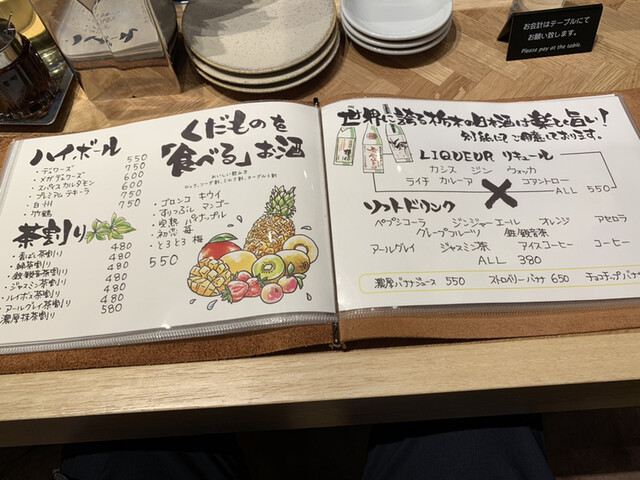 お会計はテーブルにて
お願い致します。
Please pay at the table.
ハイボール
・デュワーズ 550
・メガデュワーズ 750
・スパイスカルダモン 600
・プレミアムテキーラ 600
・白州 750
・竹鶴 750
茶割り
・香ばし茶割り 480
・緑茶割り 480
・鉄観音茶割り 480
・ジャスミン茶割り 480
・ルイボス茶割り 480
・アールグレイ茶割り 480
・濃厚抹茶割り 580
くだものを
「食べる」お酒
おいしい飲み方
ロック、ソーダ割、ミルク割、ヨーグルト割
・ゴロンゴ キウイ
・すりつぶし マンゴー
・完熟 パイナップル
・初恋 苺
・とろとろ 梅
550
世界に誇る栃木の日本酒は安くて旨い!
別紙にてご用意しております。
LIQUEUR リキュール
カシス ジン ウォッカ
ライチ カルーア コアントロー
ALL 550
ソフトドリンク
ペプシコーラ ジンジャーエール オレンジ アセロラ
グレープフルーツ 鉄観音茶
アールグレイ ジャスミン茶 アイスコーヒー コーヒー
ALL 380
濃厚バナナジュース 550 ストロベリーバナナ 650 チョコチップバナナ